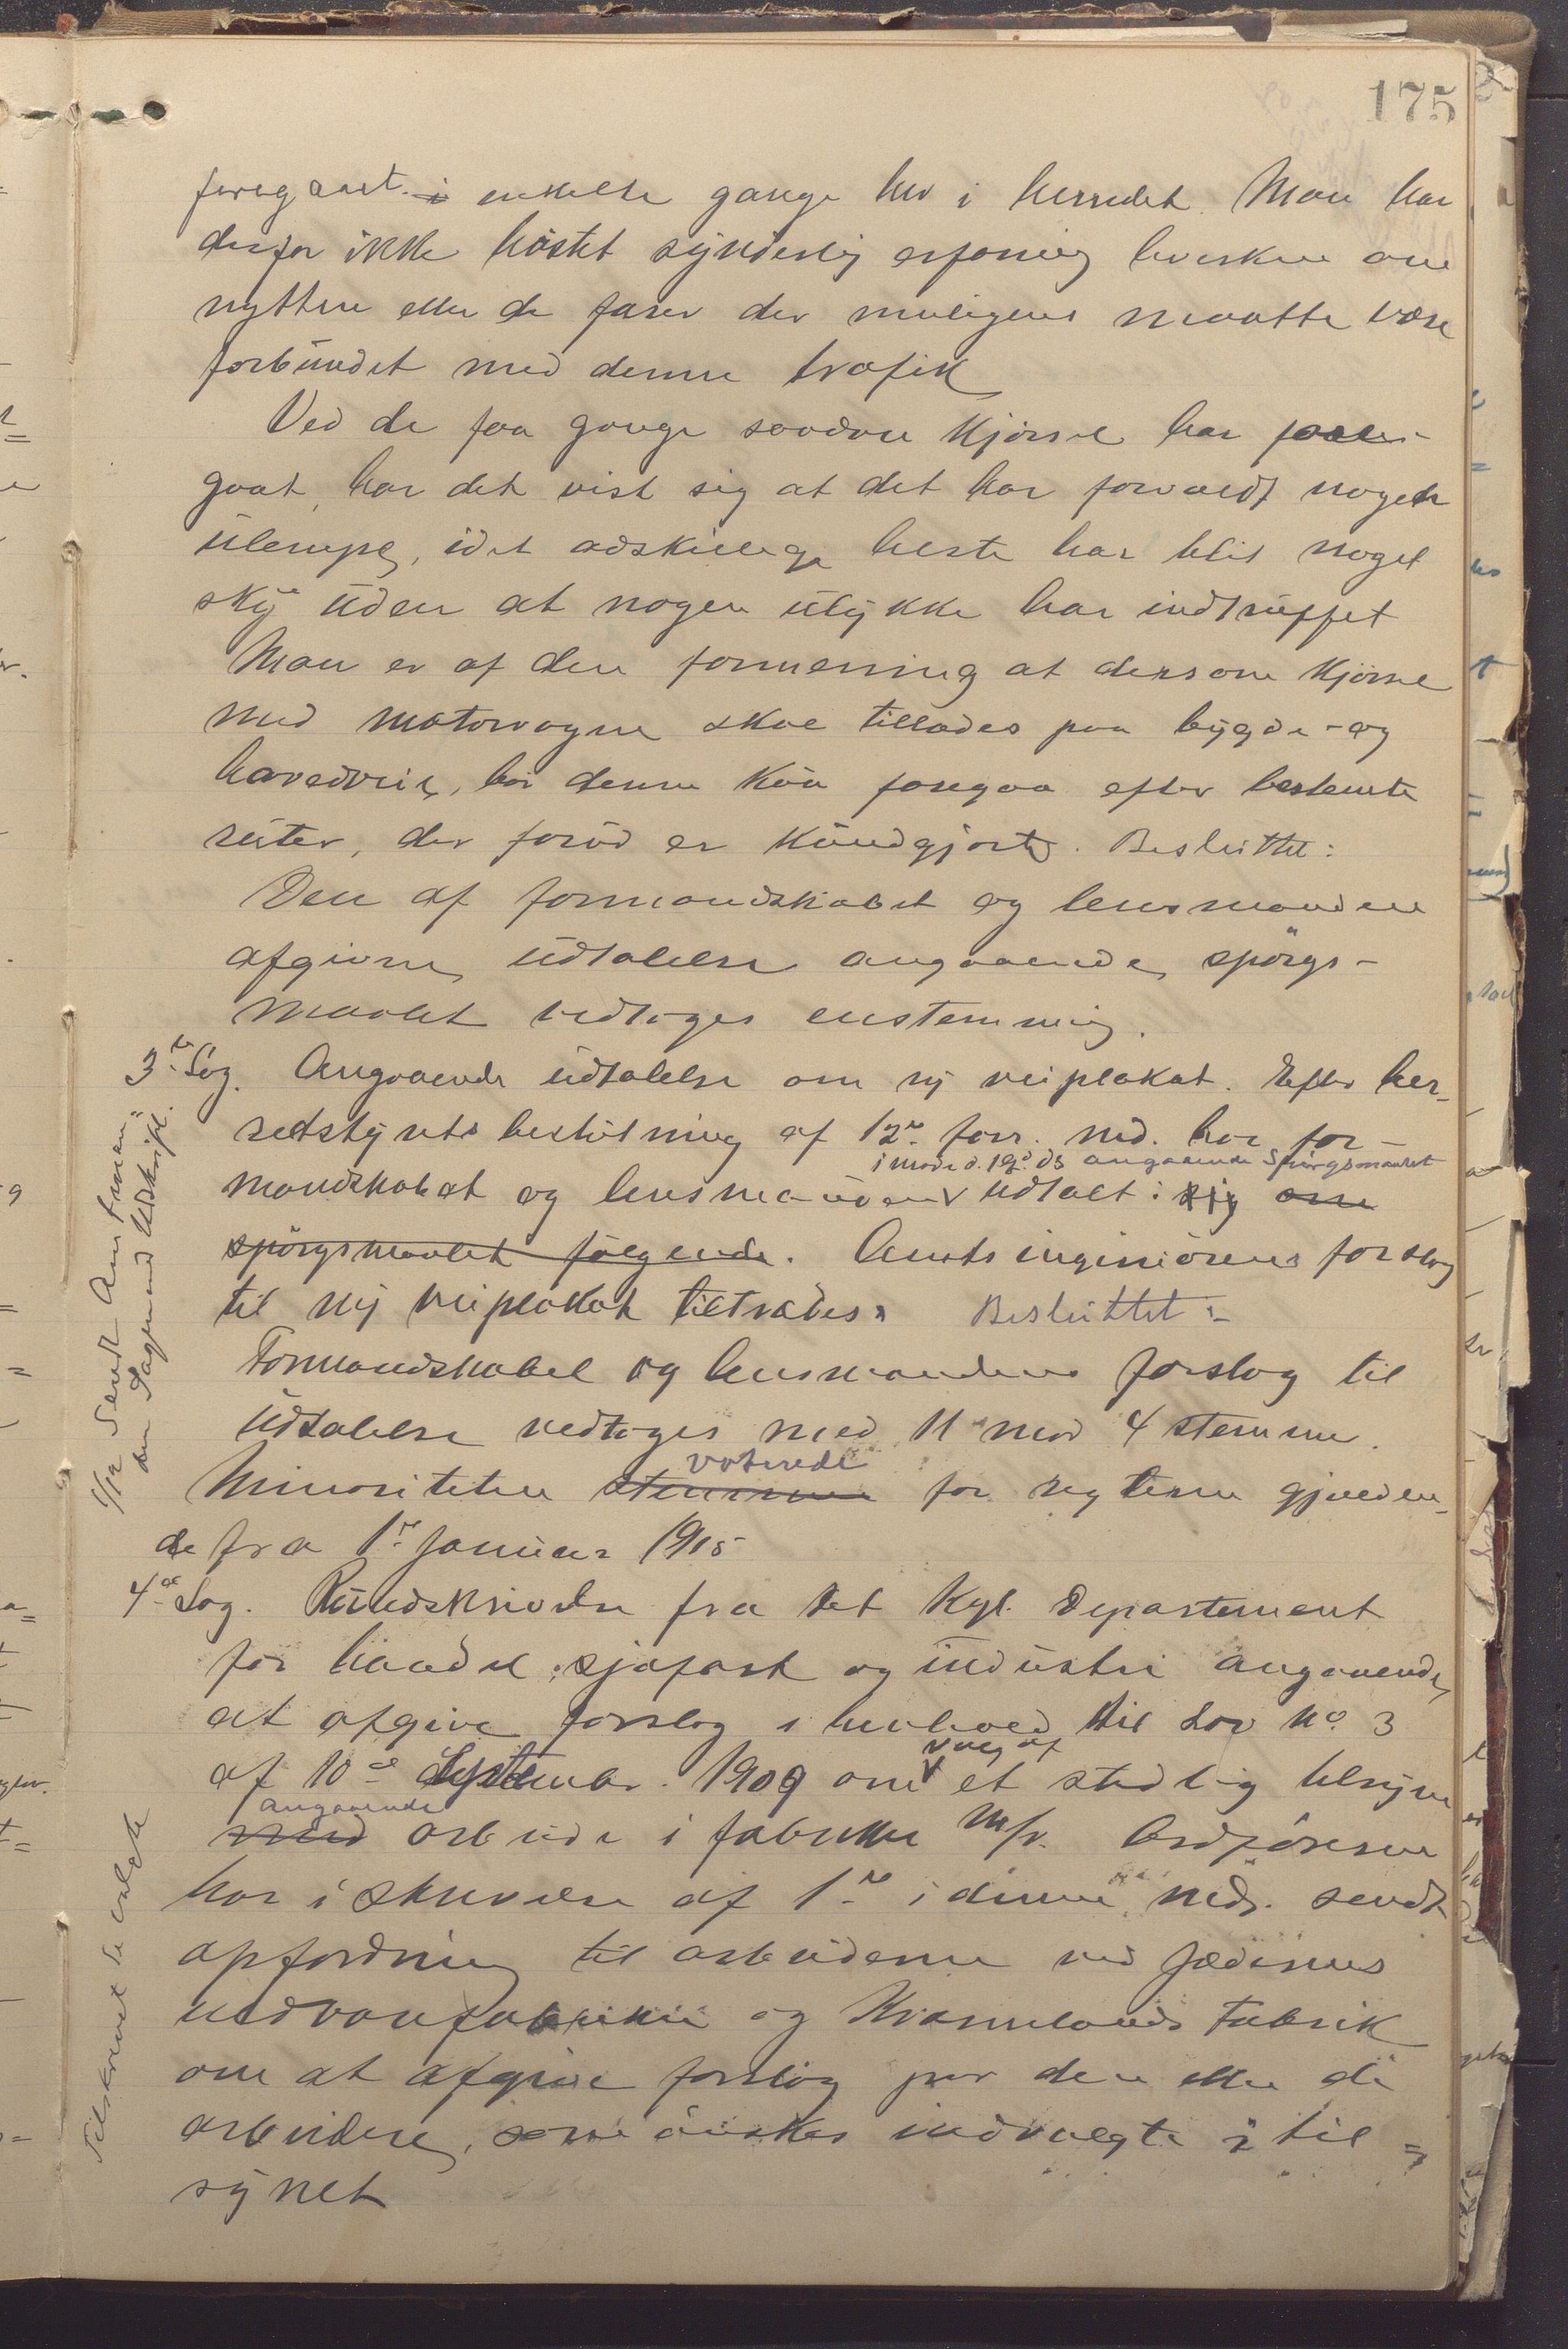 175
foregaat i enkelte gange her i herredet. Man har
derfor ikke höstet synderlig erfaring hverken om
nytten eller de farer der muligens maatte være
forbundet med denne trafik
Ved de faa gange saadan kjörsel har fore-
gaat, har det vist sig at det har forvoldt nogen
ulempe, idet adskillige heste har blit noget
sky uden at nogen ulykke har indtruffet
Man er af den formening at dersom kjörsel
med motorvogne skal tillades paa bygde- og
hovedveie, bör denne kun foregaa efter bestemte
ruter, der forud er kundgjort. Besluttet:
Den af formandskabet og lensmanden
afgivne udtalelse angaaende spörgs-
maalet vedtoges enstemmig.
3die Sag. Angaaende udtalelse om ny veiplakat. Efter her-
redstyrets beslutning af 12te forr. md. har for-
i möde d. 19de ds angaaende Spörgsmaalet
mandskabet og lensmanden udtalt: sig om
spörgsmaalet fölgende. Amtsingeniörens forslag
til ny veiplakat tiltrædes. Besluttet:
Formandskabet og lensmandens forslag til
Udtalelse vedtoges med 11 mod 4 stemme.
voterede
Minoriteten stemme for reglerne gjælden-
de fra 1ste Januar 1915
4de Sag. Rundskrivelse fra det Kgl. Departement
for handel, sjöfart og industri angaaende
at afgive forslag i henhold til Lov No 3
valg af
af 10de September 1909 om et stedlig tilsyn
angaaende
med arbeide i fabrikker m/v. Ordföreren
har i skrivelse af 1ste i denne mds. sendt
opfordring til arbeiderne ved Jæderens
uldvarefabrikk og Kvernelands Fabrik
om at afgive forslag paa den eller de
arbeidere, som önskes indvalgte i til=
synet
1/12 Sendt Amtmanden Sagen med Udskrift.
Tilskrevet de valgte